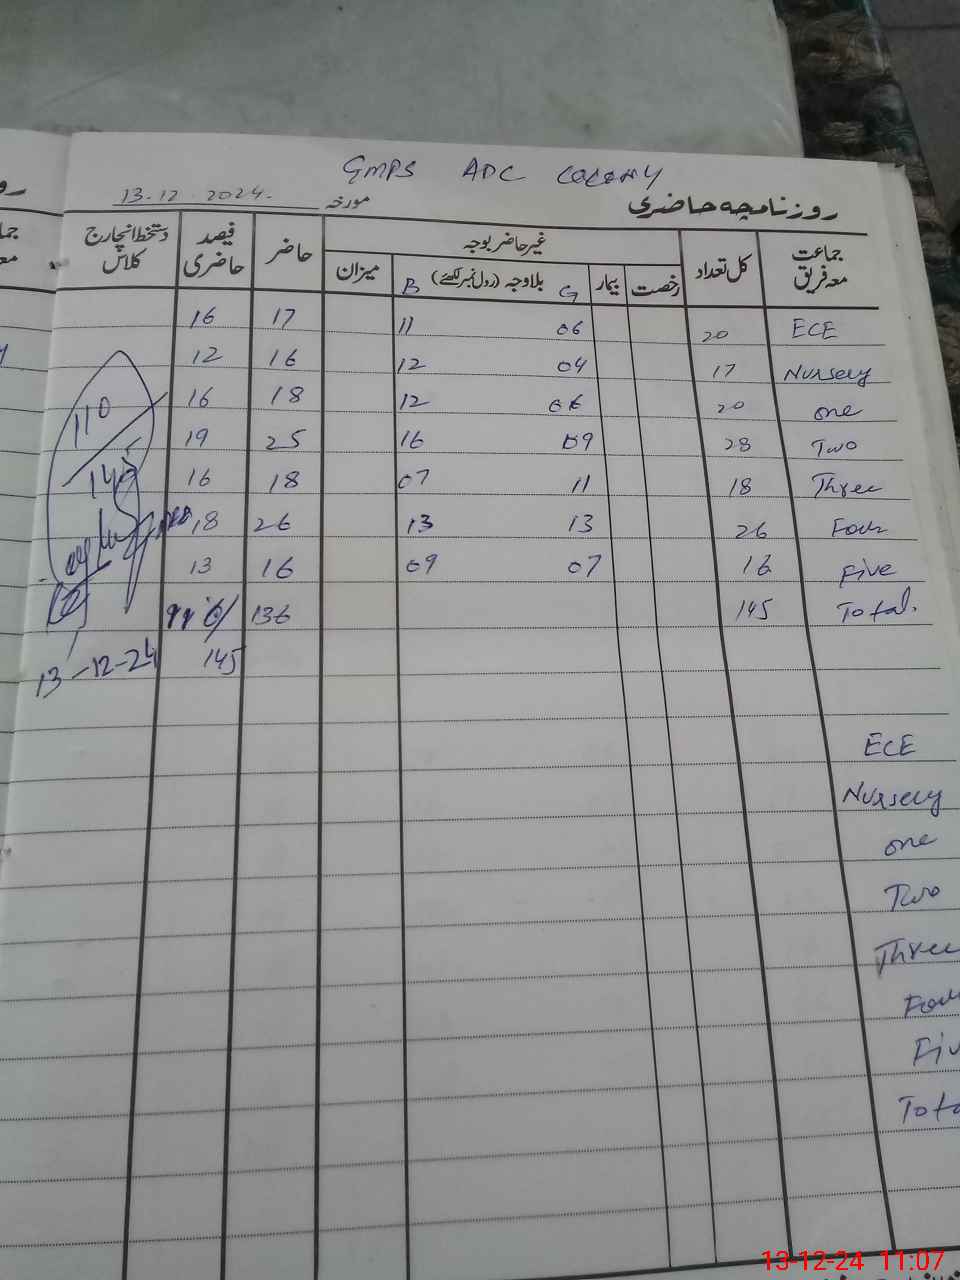 GMPS ADC COLONY
روزنامچہ حاضری مورخہ 13.12.2024.
جماعت معہ فریق کل تعداد غیر حاضر بوجہ حاضر فیصد حاضری دستخط انچارج کلاس
رخصت بیمار بلاوجہ (رول نمبر لکھئے) میزان
G B
ECE 20 06 11 17 16
Nursery 17 04 12 16 12
one 20 06 12 18 16
Two 28 09 16 25 19
Three 18 11 07 18 16
Four 26 13 13 26 18
Five 16 07 09 16 13
Total. 145 136
145
110
140
13-12-24
ECE
Nursery
one
Two
Three
Four
Fiv
Tota
13-12-24 11:07